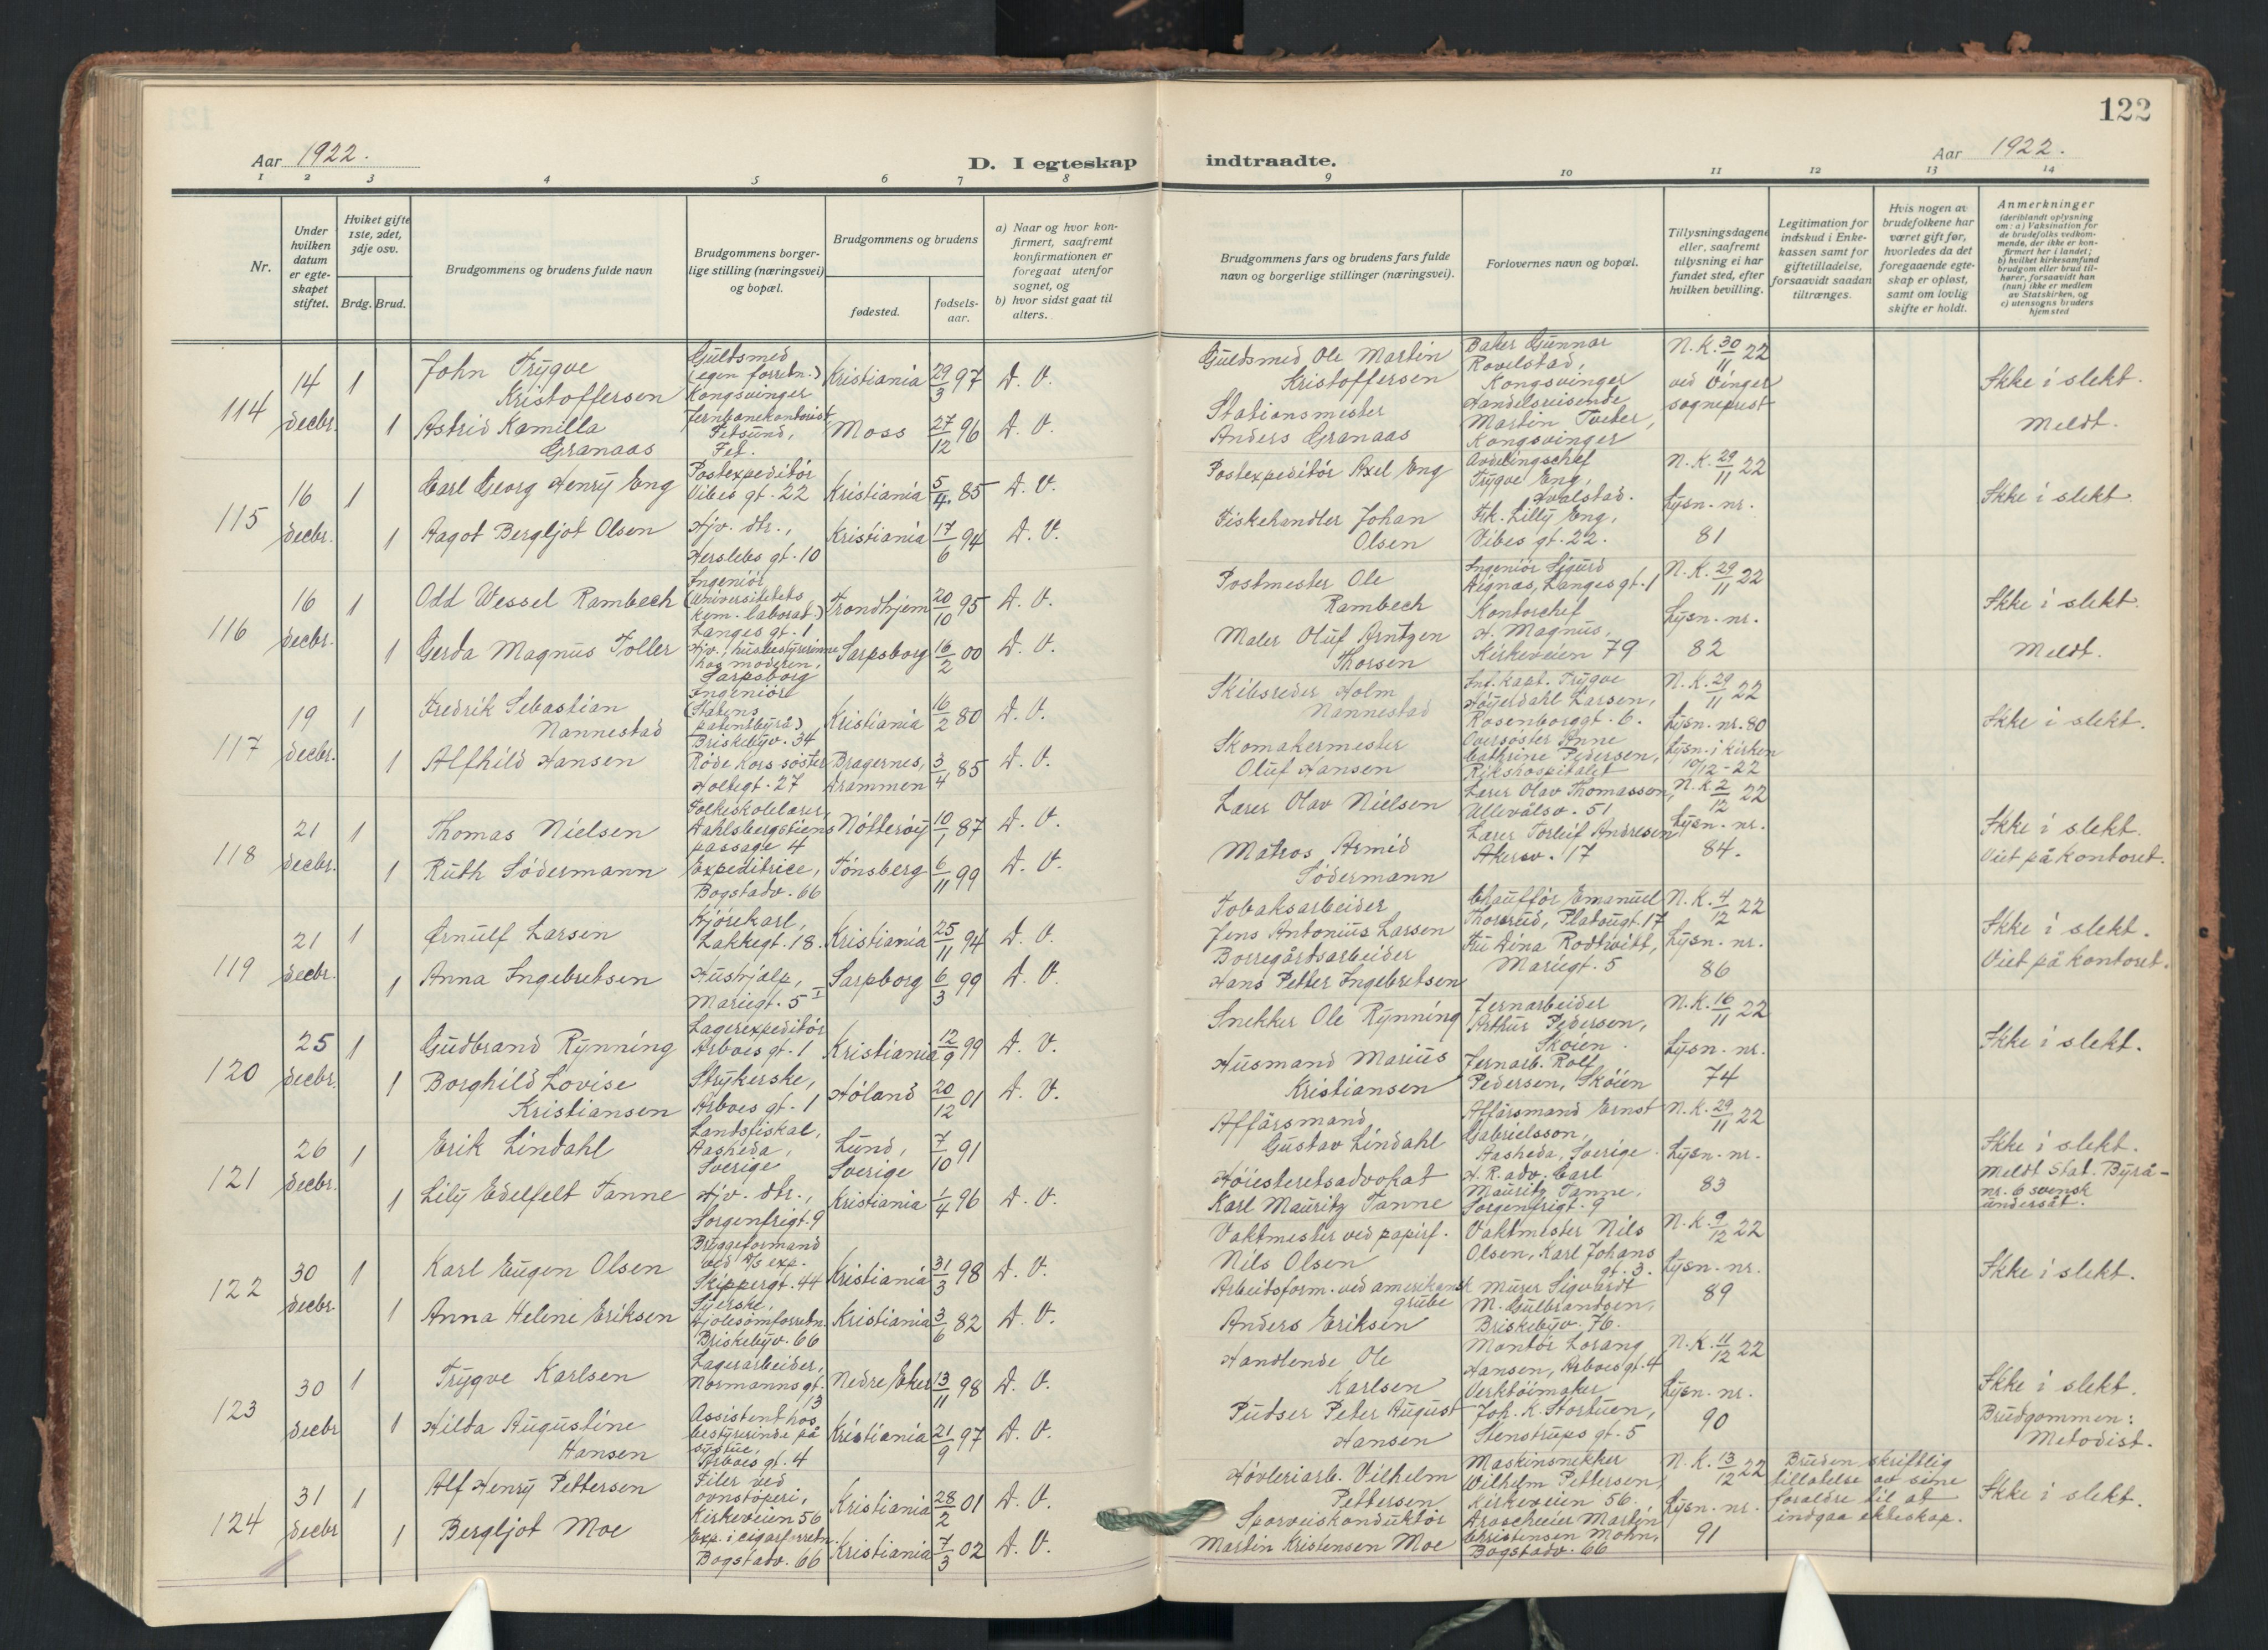 122
Aar 1922.
D. I egteskap indtraadte.
Aar 1922.
1 2 3 4 5 6 7 8 9 10 11 12 13 14
Nr.
Under hvilken datum er egte-skapet stiftet.
Hvilket gifte 1ste, 2det, 3dje osv.
Brdg. Brud.
Brudgommens og brudens fulde navn
Brudgommens borger-lige stilling (næringsvei) og bopæl.
Brudgommens og brudens
fødested.
fødsels-aar.
a) Naar og hvor kon-firmert, saafremt konfirmationen er foregaat utenfor sognet, og
b) hvor sidst gaat til alters.
Brudgommens fars og brudens fars fulde navn og borgerlige stillinger (næringsvei).
Forlovernes navn og bopæl.
Tillysningsdagene eller, saafremt tillysning ei har fundet sted, efter hvilken bevilling.
Legitimation for indskud i Enke-kassen samt for giftetilladelse, forsaavidt saadan tiltrænges.
Hvis nogen av brudefolkene har været gift før, hvorledes da det foregaaende egte-skap er opløst, samt om lovlig skifte er holdt.
Anmerkninger
(deriblandt oplysning om: a) Vaksination for de brudefolks vedkom-mende, der ikke er kon-firmert her i landet; b) hvilket kirkesamfund brudgom eller brud til-hører, forsaavidt han (hun) ikke er medlem av Statskirken, og c) utensogns bruders hjemsted
114
14 decbr.
1
John Trygve Kristoffersen
Guldsmed (egen forretn.) Kongsvinger
Kristiania
29/3 97
D. V.
Guldsmed Ole Martin Kristoffersen
Baker Gunnar Rovelstad, Kongsvinger
N.K. 30/11 22
ved Vinger sogneprest
Ikke i slekt.
1
Astrid Kamilla Granaas
Jernbanekontorist Fetsund, Fet.
Moss
27/12 96
D. V.
Stationsmester Anders Granaas
Handelsreisende Martin Tveter, Kongsvinger
Meldt.
115
16 decbr.
1
Carl Georg Henry Eng
Postexpeditör Vibes gt. 22
Kristiania
5/4 85
D. V.
Postexpeditör Axel Eng
Avdelingschef Trygve Eng, Hvalstad.
N.K. 29/11 22
Lysn. nr. 81
Ikke i slekt.
1
Aagot Bergljot Olsen
Hjv. dtr., Herslebs gt. 10
Kristiania
17/6 94
D. V.
Fiskehandler Johan Olsen
Frk. Lilly Eng, Vibes gt. 22.
116
16 decbr.
1
Odd Wessel Rambech
Ingeniör, (Universitetets kem. laborat.) Langes gt. 1
Trondhjem
20/10 95
D. V.
Postmester Ole Rambech
Ingeniör Sigurd Aignæs, Langes gt. 1
N.K. 29/11 22
Lysn. nr. 82
Ikke i slekt.
1
Gerda Magnus Toller
Hjv., husbestyrerinne hos moderen, Sarpsborg
Sarpsborg
16/2 00
D. V.
Maler Oluf Arntzen Thorsen
Kontorchef H. Magnus, Kirkeveien 79
Meldt.
117
19 decbr.
1
Fredrik Sebastian Nannestad
Ingeniöre (Statens patentbyrå) Briskebyv. 34
Kristiania
16/2 80
D. V.
Skibsreder Holm Nannestad
Inf. kapt. Trygve Höyerdahl Larsen, Rosenborggt. 6.
N.K. 29/11 22
Lysn. nr. 80
Lysn. i kirken 10/12-22
Ikke i slekt.
1
Alfhild Hansen
Röde Kors söster Holtegt. 27
Bragernes, Drammen
3/4 85
D. V.
Skomakermester Oluf Hansen
Oversöster Anne Cathrine Pedersen, Rikshospitalet
118
21 decbr.
1
Thomas Nielsen
Folkeskolelærer, Dahlsbergstiens passage 4
Nötteröy
10/1 87
D. V.
Lærer Olav Nielsen
Lærer Olav Thomassen, Ullevålsv. 51
N.K. 2/12 22
Lysn. nr. 84.
Ikke i slekt.
Viet på kontoret.
1
Ruth Södermann
Expeditrice, Bogstadv. 66
Tönsberg
6/11 99
D. V.
Matros Armid Södermann
Lærer Torleif Andresen Akersv. 17
119
21 decbr.
1
Ørnulf Larsen
Kjörekarl, Lakkegt. 18.
Kristiania
25/11 94
D. V.
Tobaksarbeider Jens Antonius Larsen
Chaufför Emanuel Thorsrud, Platougt. 17
N.K. 4/12 22
Lysn. nr. 86
Ikke i slekt.
Viet på kontoret.
1
Anna Ingebretsen
Hushjalp, Mariegt. 5 I
Sarpborg
6/3 99
D. V.
Borregårdsarbeider Hans Petter Ingebretsen
Fru Dina Rodtwitt, Mariegt. 5
120
25 decbr.
1
Gudbrand Rynning
Lagerexpeditör Arboes gt. 1
Kristiania
12/9 99
D. V.
Snekker Ole Rynning
Jernarbeider Arthur Pedersen, Sköien.
N.K. 16/11 22
Lysn. nr. 74
Ikke i slekt.
1
Borghild Lovise Kristiansen
Strykerske, Arboes gt. 1
Höland
20/12 01
D. V.
Husmand Marius Kristiansen
Jernarb. Rolf Pedersen, Sköien
121
26 decbr.
1
Erik Lindahl
Landsfiskal, Aasheda, Sverige
Lund, Sverige
7/10 91
Affärsmand Gustav Lindahl
Affärsmand Ernst Gabrielsson, Aasheda, Sverige.
N.K. 29/11 22
Lysn. nr. 83
Ikke i slekt.
Meldt Stat. Byrå-
nr. 6 svensk undersåt.
1
Lily Edelfelt Tanne
Hjv. dtr., Sorgenfrigt. 9
Kristiania
1/4 96
D. V.
Höiesteretsadvokat Karl Mauritz Tanne
H.R. adv. Carl Mauritz Tanne, Sorgenfrigt. 9
122
30 decbr.
1
Karl Eugen Olsen
Bryggeformand ved A/S exp. Skippergt. 44
Kristiania
31/3 98
D. V.
Vaktmester ved papirf. Nils Olsen
Vaktmester Nils Olsen, Karl Johans gt. 3.
N.K. 9/12 22
Lysn. nr. 89
Ikke i slekt.
1
Anna Helene Eriksen
Syerske, Kjolesömforretn. Briskebyv. 66
Kristiania
3/6 82
D. V.
Arbeidsform. ved amerikansk grube Anders Eriksen
Murer Sigvardt M. Gulbrandsen, Briskebyv. 76.
123
30 decbr
1
Trygve Karlsen
Lagerarbeider, Normanns gt. 13
Nedre Eker
13/11 98
D. V.
Handlende Ole Karlsen
Montör Lorang Hansen, Arboes gt. 4
N.K. 11/12 22
Lysn. nr. 90
Ikke i slekt.
Brudgommen: Metodist.
1
Hilda Augustine Hansen
Assistent hos bestyrerinde på systue, Arboes gt. 4
Kristiania
21/9 97
D. V.
Pudser Peter August Hansen
Verktöimaker Joh. K. Stortuen, Stenstrups gt. 5
124
31 decbr
1
Alf Henry Pettersen
Filer ved ovnstöperi, Kirkeveien 56
Kristiania
28/2 01
D. V.
Hövleriarb. Vilhelm Pettersen
Maskinsnekker Wilhelm Pettersen, Kirkeveien 56.
N.K. 13/12 22
Lysn. nr. 91
Bruden skriftlig tillatelse av sine foraldre til at indgaa ekteskap.
Ikke i slekt.
1
Bergljot Moe
Exp. i cigarforretn. Bogstadv. 66
Kristiania
7/3 02
D. V.
Sporveiskonduktör Martin Kristensen Moe
Martin Christensen Mohn, Bogstadv. 66